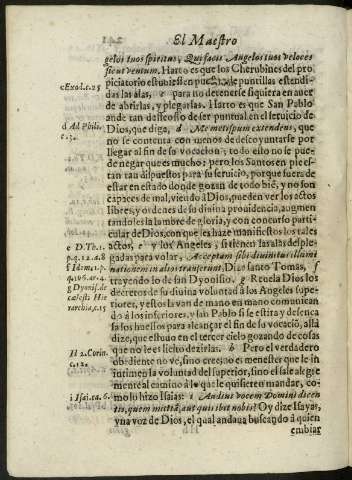 El Maestro
gelos tuos spiritus, Qui facis Angelos tuos veloces
sicut ventum, Harto es que los Cherubines del pro
piciatorio estuviessen de puntillas estendi-
c Exod. c. 25
das las alas, c para no detenerse siquiera en auer
de abrirlas, y plegarlas. Harto es que San Pablo
ande tan desseoso de ser puntual en el seruicio de
d Ad Phili.
c. 3.
Dios, que diga, d Me metipsum extendens, que
no se contenta con menos de descoyuntarse por
llegar al fin de su vocacion; todo esto no se pue-
de negar que es mucho: pero los Santos en pie es-
tan tan dispuestos para su seruicio, porque fuera de
estar en estado donde gozan de todo bié, y no son
capaces de mal, viendo à Dios, pueden ver los actos
libres, y ordenes de su diuina prouidencia, augmen
tandoles la lumbre de gloria, y con concurso parti-
cular de Dios, con que les haze manifiestos los tales
e D. Th. 1.
p. q. 12. a. 8
actos, e y los Angeles, si tienen las alas desple-
gadas para volar, Acceptam sibi diuinitus illumi
f Idem 1. p.
nationem in alios transferunt, Dize santo Tomas, f
trayendo lo de san Dyonisio. g Reuela Dios los
g Dyonis. de
cælesti Hie
rarchia, c.
decretos de su diuina voluntad à los Angeles supe-
riores, y estos la van de mano en mano comunican
do à los inferiores, y san Pablo si se estira y defenca
sa los huessos para alcançar el fin de su vocació, allà
dize, que estuuo en el tercer cielo gozando de cosas
H 2. Corin.
c. 12.
que no le es licito dezirlas. h Pero el verdadero
obediente no ve, sino creë, no es menester que le in
timen la voluntad del superior, sino el sale alegre
mente al camino à lo que le quisieren mandar, co-
i Isai. ca. 6.
mo lo hizo Isaias: i Audiui vocem Domini dicen
tis, quem mittã, aut quis ibit nobis? Oy dize Isayas,
vna voz de Dios, el qual andaua buscando à quien
embiar